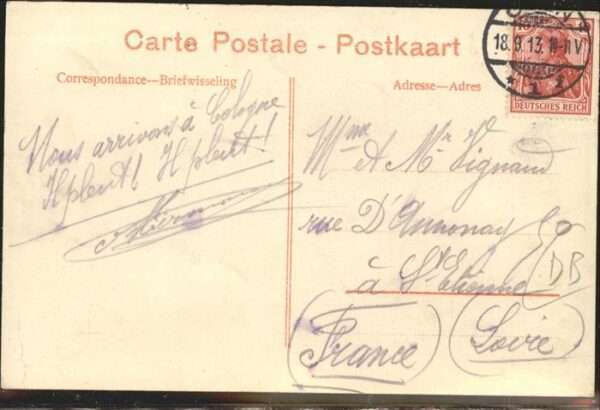 Carte Postale - Postkaart
Correspondance—Briefwisseling
Adresse—Adres
18.9.13. 10-11 V
DEUTSCHES REICH
Nous arrivons à Cologne
Il pleut! Il pleut!
Mme et Mr Vignand
rue D'Annonay 59
à St Etienne
(France) (Loire)
DB